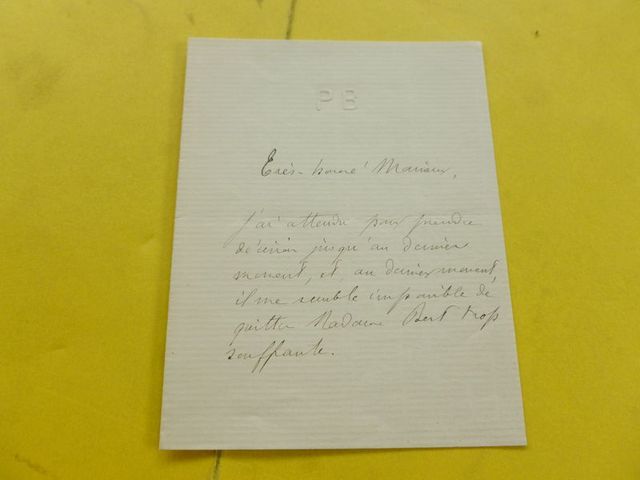 PB
Très-honoré Monsieur,
J'ai attendu pour prendre
décision jusqu'au dernier
moment, et au dernier moment,
il me semble impossible de
quitter Madame Bert trop
souffrante.